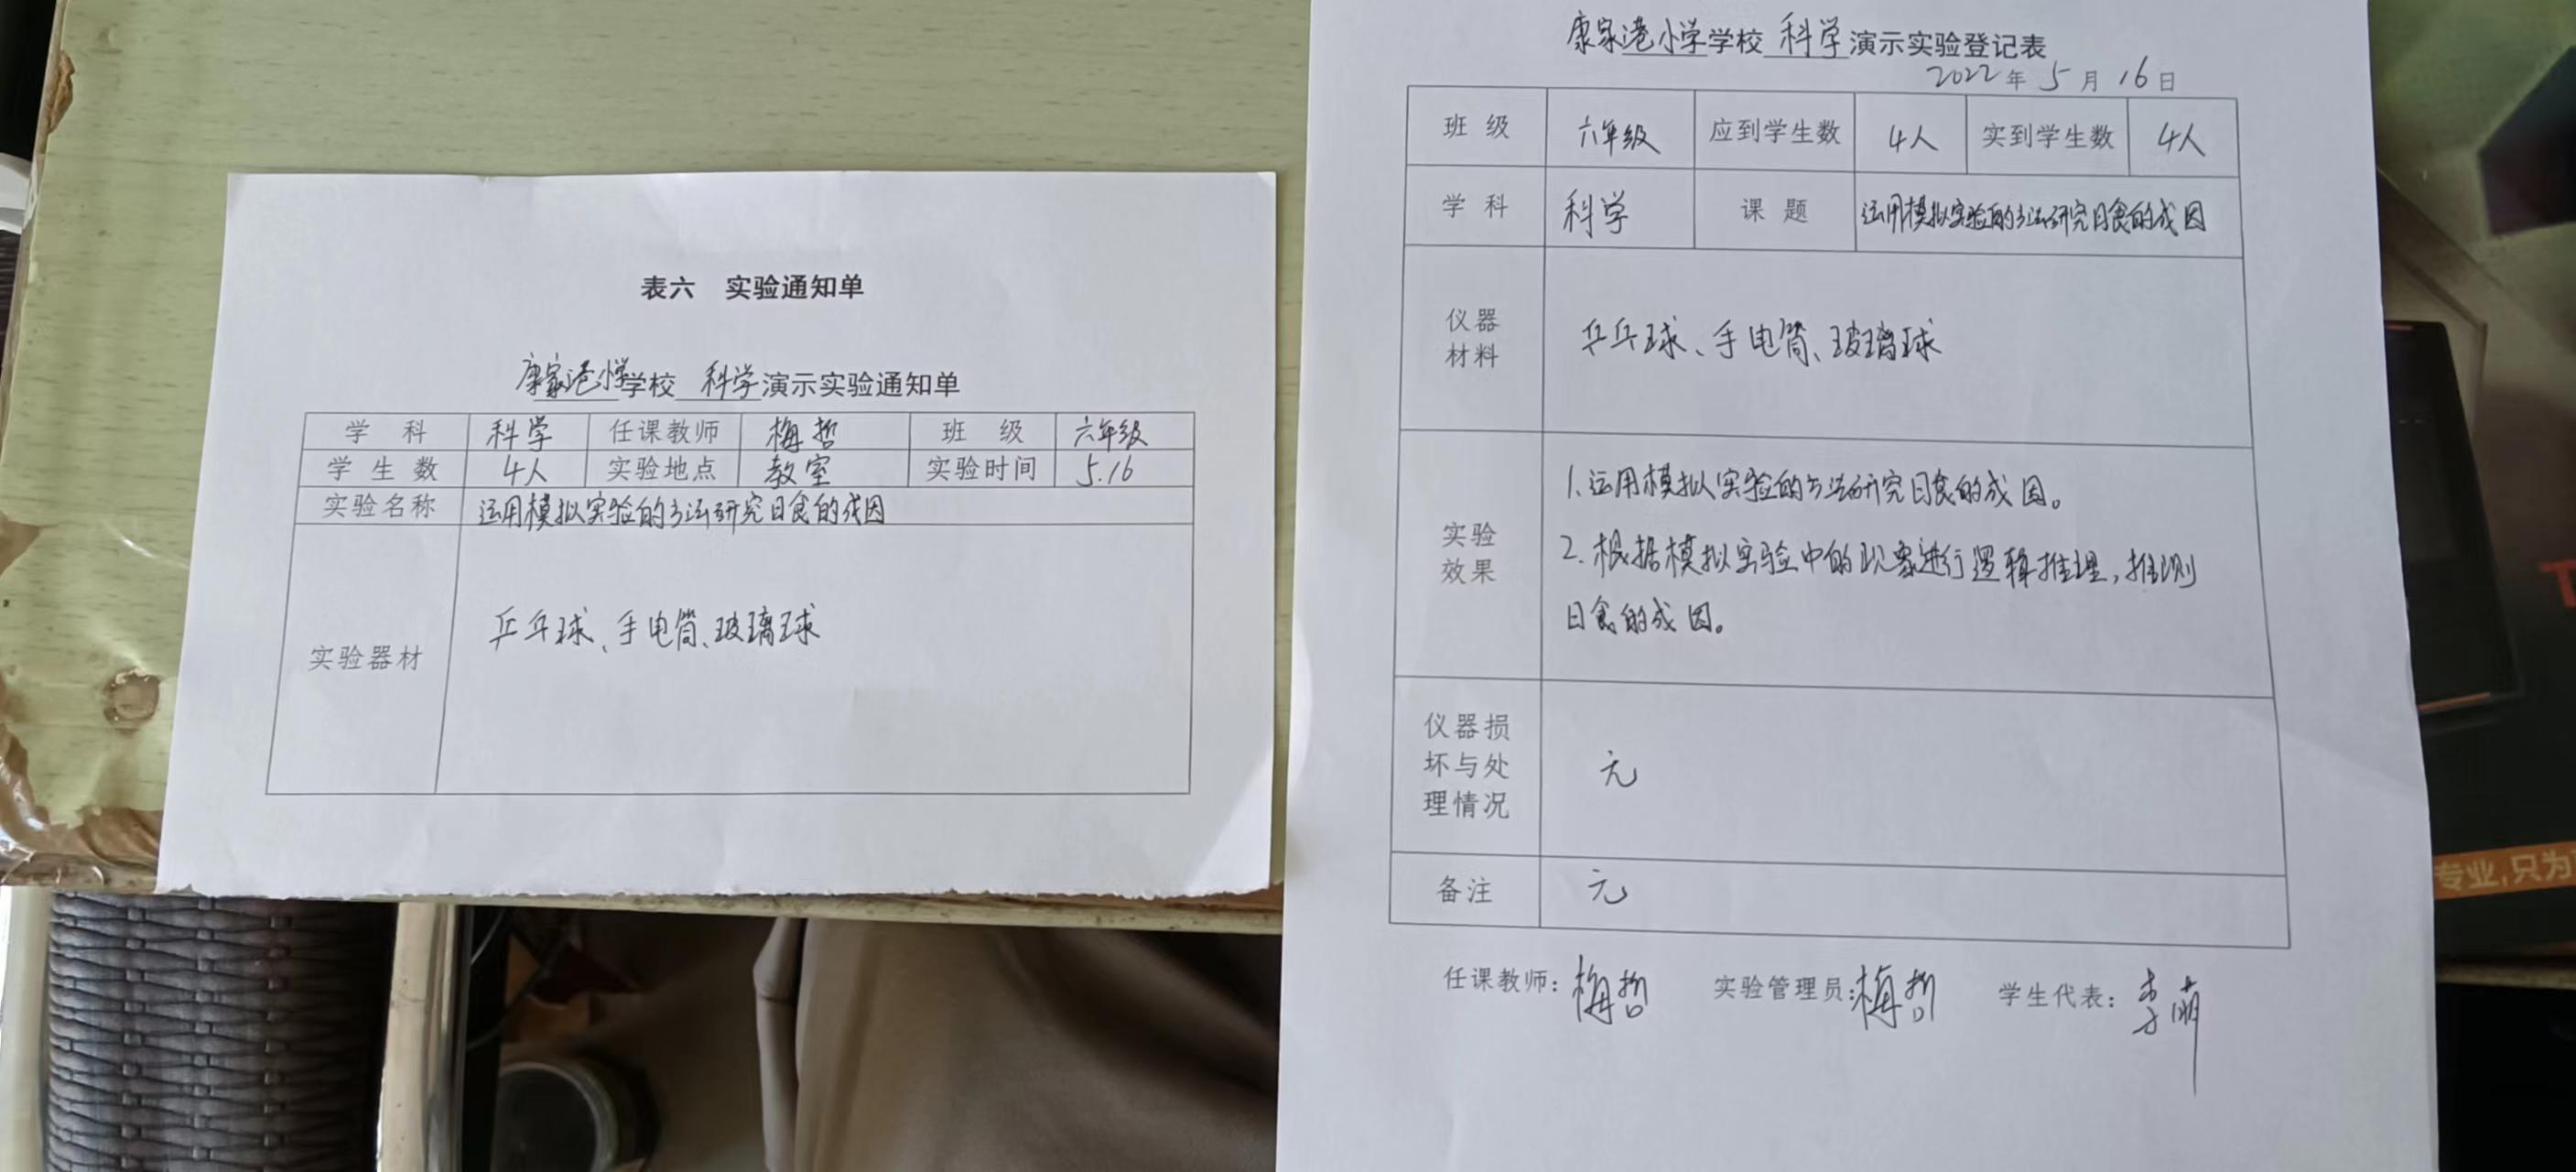 表六 实验通知单
康家港小学学校 科学 演示实验通知单
学 科 科学 任课教师 梅哲 班 级 六年级
学 生 数 4人 实验地点 教室 实验时间 5.16
实验名称 运用模拟实验的方法研究日食的成因
实验器材 乒乓球、手电筒、玻璃球
康家港小学学校 科学 演示实验登记表
2022年 5月 16日
班 级 六年级 应到学生数 4人 实到学生数 4人
学 科 科学 课 题 运用模拟实验的方法研究日食的成因
仪器
材料
乒乓球、手电筒、玻璃球
实验
效果
1.运用模拟实验的方法研究日食的成因。
2.根据模拟实验中的现象进行逻辑推理,推测
日食的成因。
仪器损
坏与处
理情况
无
备注 无
任课教师:梅哲 实验管理员:梅哲 学生代表:李萌
专业,只为